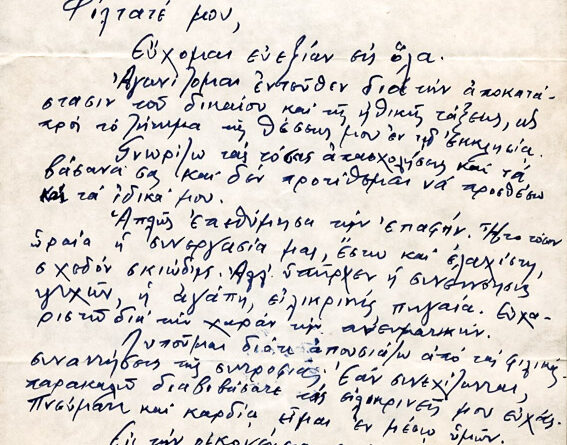 Φίλτατέ μου,
Εὔχομαι εὐεξίαν εἰς ὅλα.
Ἀγωνίζομαι ἐντεῦθεν διὰ τὴν ἀποκατά-
στασιν τοῦ δικαίου καὶ τῆς ἠθικῆς τάξεως, ὡς
πρὸς τὸ ζήτημα τῆς θέσεώς μου ἐν τῇ Ἐκκλησίᾳ.
Γνωρίζω τὰς τόσας ἀπασχολήσεις καὶ τὰ
βάσανά σας καὶ δὲν προτίθεμαι νὰ προσθέσω
καὶ τὰ ἰδικά μου.
Ἁπλῶς ἐπεθύμησα τὴν ἐπαφήν. Ἦτο τόσον
ὡραία ἡ συνεργασία μας, ἔστω καὶ ἐλαχίστη,
σχεδὸν σκιώδης. Ἀλλ' ὑπῆρχεν ἡ συνεννόησις
ψυχῶν, ἡ ἀγάπη, εἰλικρινής, πηγαία. Εὐχα-
ριστῶ διὰ τὴν χαρὰν τὴν πνευματικήν.
Λυποῦμαι διότι ἀπουσιάζω ἀπὸ τὰς φιλικὰς
συναντήσεις τῆς συντροφιᾶς. Ἐὰν συνεχίζωνται,
παρακαλῶ διαβιβάσατε τὰς εἰλικρινεῖς μου εὐχάς.
Πνεύματι καὶ καρδίᾳ εἶμαι ἐν μέσῳ ὑμῶν.
Εἰς τὴν